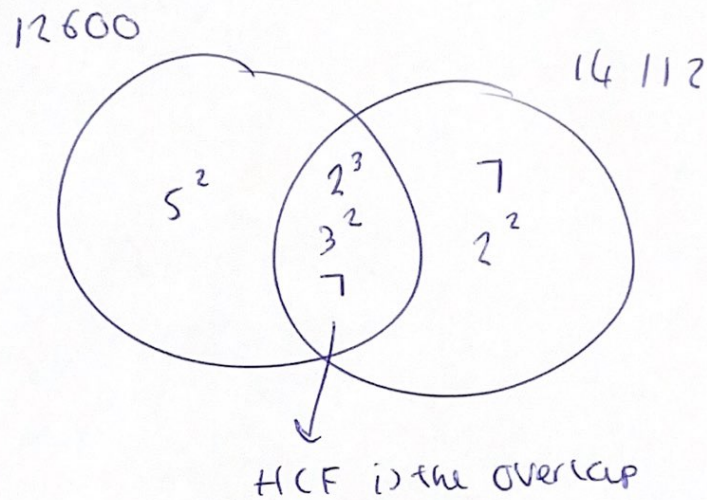 12600
14112
5²
2³
3²
7
7
2²
HCF is the overlap